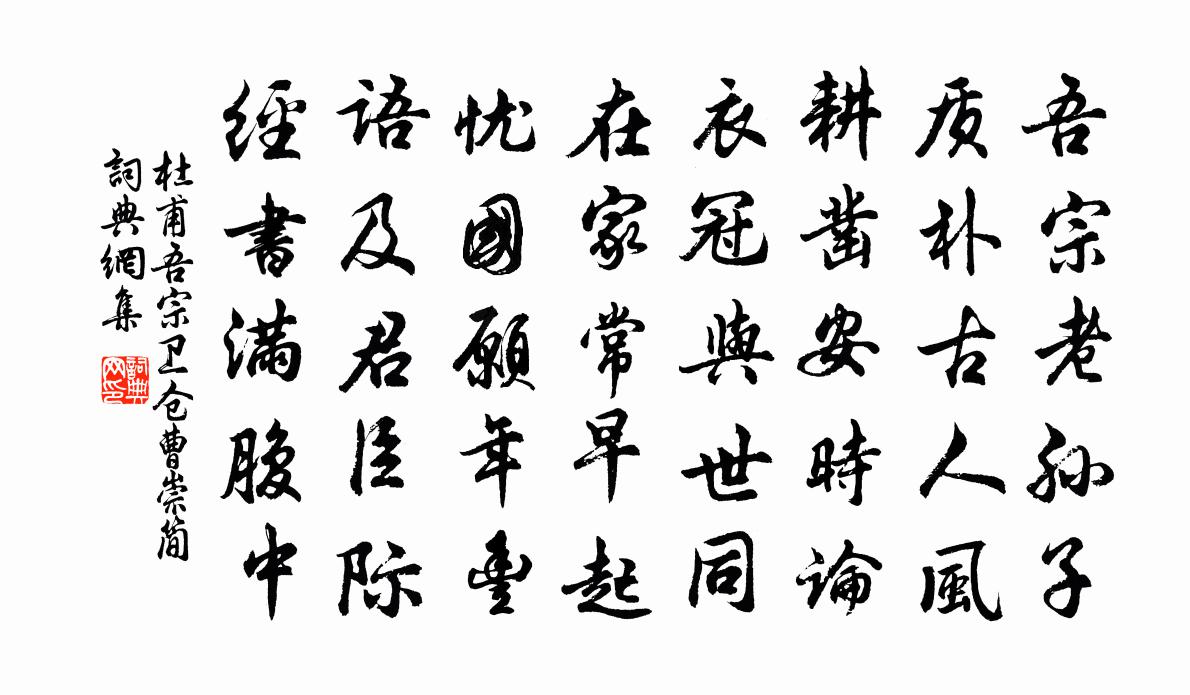 吾宗老孙子
质朴古人風
耕凿安時論
衣冠與世同
在家常早起
忧國願年豐
语及君臣际
經書满腹中
杜甫吾宗卫仓曹崇简
詞典網集
詞典网印